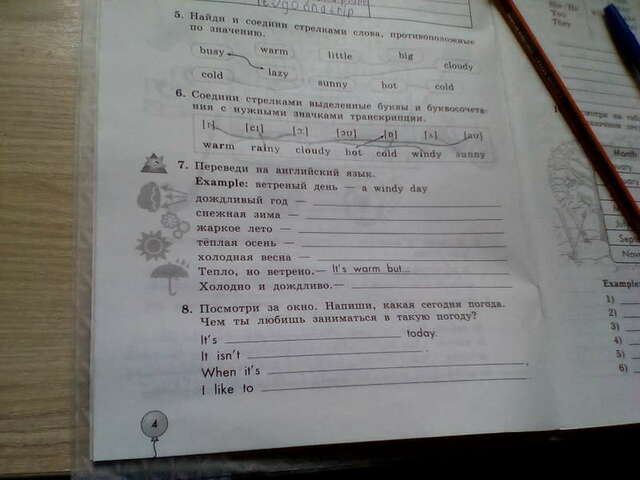 let's go on a trip
5. Найди и соедини стрелками слова, противоположные
по значению.
busy warm little big cloudy
cold lazy sunny hot cold
6. Соедини стрелками выделенные буквы и буквосочета-
ния с нужными значками транскрипции.
[ɪ] [eɪ] [ɔ:] [əʊ] [ɒ] [ʌ] [aʊ]
warm rainy cloudy hot cold windy sunny
7. Переведи на английский язык.
Example: ветреный день — a windy day
дождливый год —
снежная зима —
жаркое лето —
тёплая осень —
холодная весна —
Тепло, но ветрено.— It's warm but...
Холодно и дождливо.—
8. Посмотри за окно. Напиши, какая сегодня погода.
Чем ты любишь заниматься в такую погоду?
It's today.
It isn't .
When it's ,
I like to .
4
She/He
You
They
Month
Sept
Nov
Example:
1)
2)
3)
4)
5)
6)